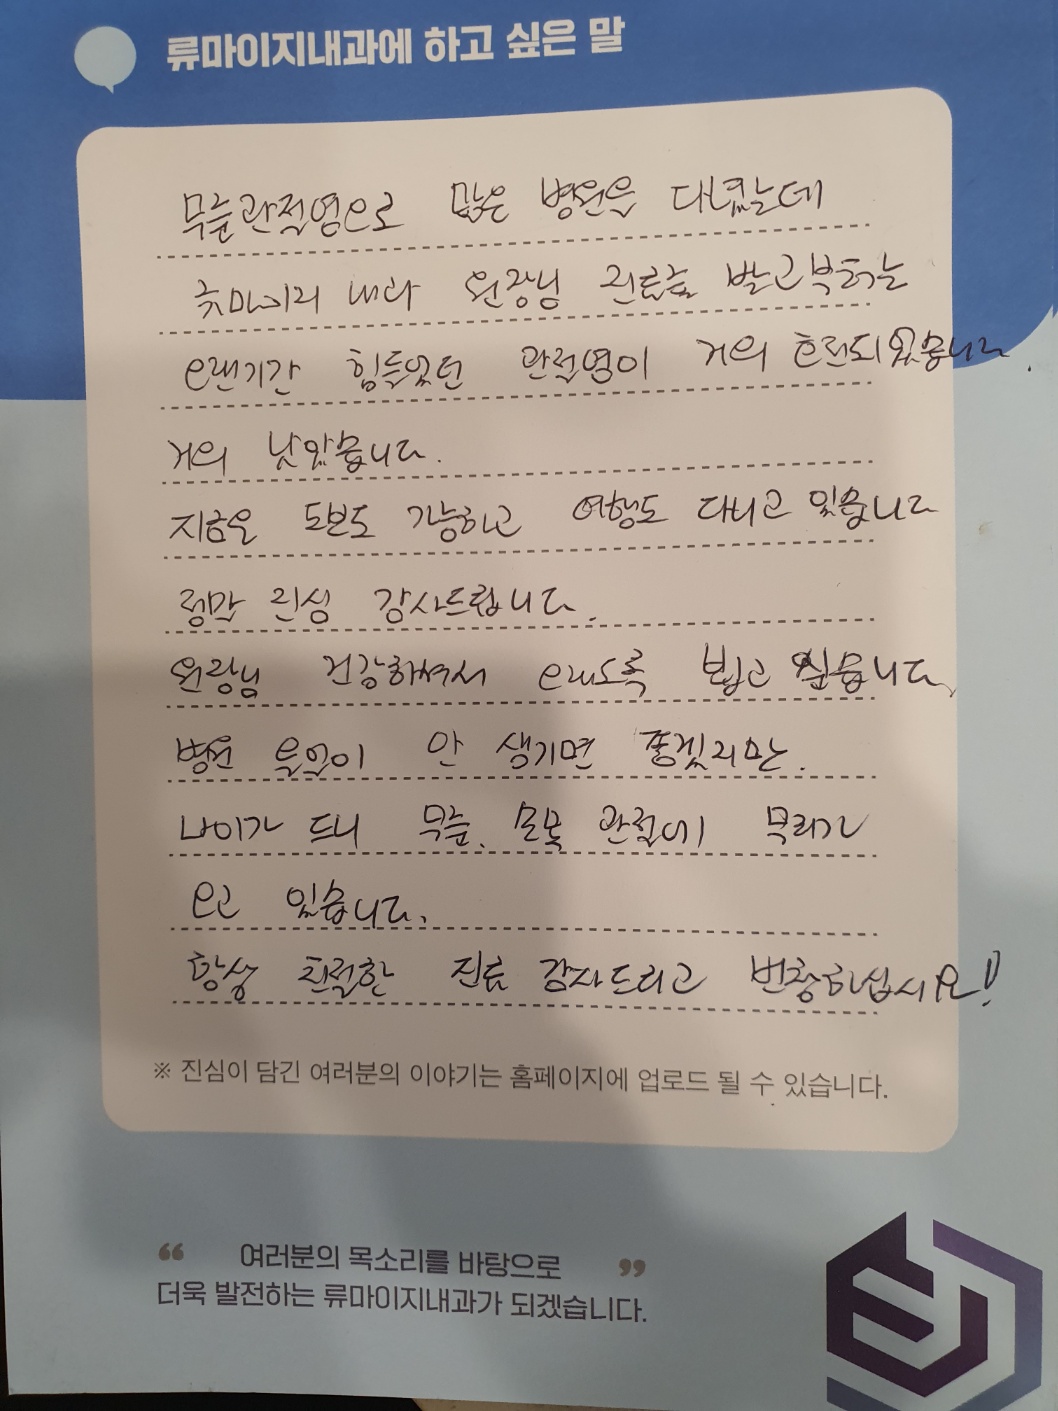 류마이지내과에 하고 싶은 말
무릎관절염으로 많은 병원을 다녔는데
류마이지 내과 원장님 진료를 받고부터는
오랜기간 힘들었던 관절염이 거의 호전되었습니다.
거의 낫았습니다.
지금은 도보도 가능하고 여행도 다니고 있습니다
정말 진심 감사드립니다.
원장님 건강하셔서 오래도록 뵙고 싶습니다.
병원 올일이 안 생기면 좋겠지만.
나이가 드니 무릎. 모못 관절에 무리가
오고 있습니다.
항상 친절한 진료 감사드리고 번창하십시요!!
※ 진심이 담긴 여러분의 이야기는 홈페이지에 업로드 될 수 있습니다.
“ 여러분의 목소리를 바탕으로 ”
더욱 발전하는 류마이지내과가 되겠습니다.